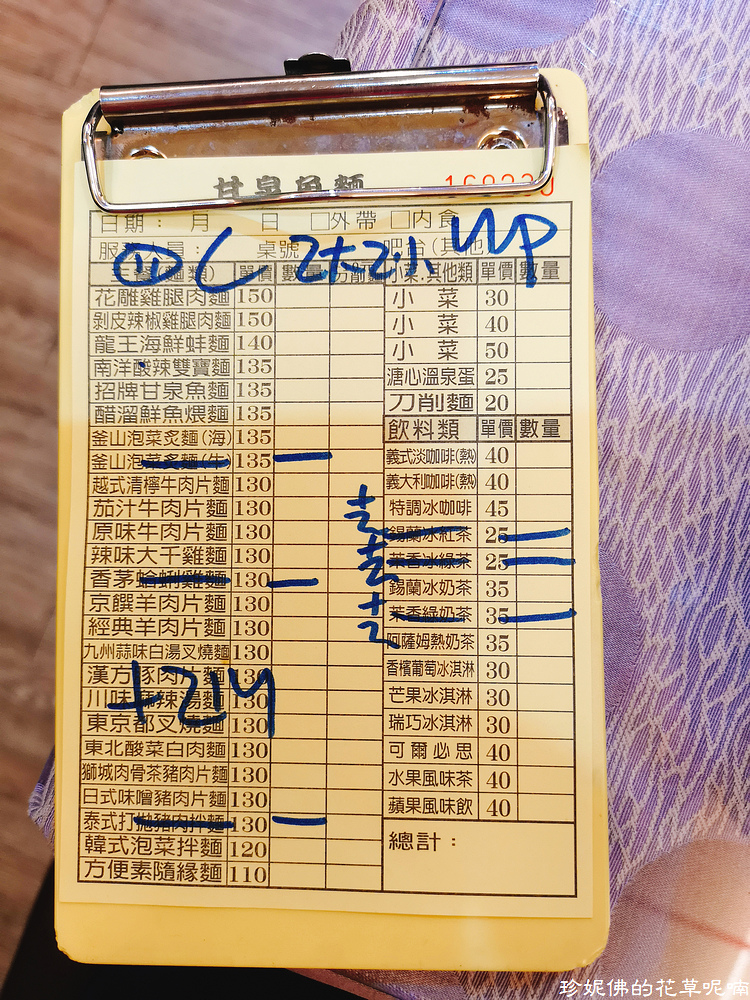 甘泉魚麵
日期： 月 日 □外帶 □內食
桌號 吧台(其他
2大2小
(麵類) 單價 數量 小菜.其他類 單價 數量
花雕雞腿肉麵 150 小菜 30
剝皮辣椒雞腿肉麵 150 小菜 40
龍王海鮮蚌麵 140 小菜 50
南洋酸辣雙寶麵 135 溏心溫泉蛋 25
招牌甘泉魚麵 135 刀削麵 20
醋溜鮮魚煨麵 135 飲料類 單價 數量
釜山泡菜炙麵(海) 135 義式淡咖啡(熱) 40
釜山泡菜炙麵(牛) 135 一 義大利咖啡(熱) 40
越式清檸牛肉片麵 130 特調冰咖啡 45
茄汁牛肉片麵 130 錫蘭冰紅茶 25 一
原味牛肉片麵 130 茉香冰綠茶 25 一
辣味大千雞麵 130 錫蘭冰奶茶 35
香茅蛤蜊雞麵 130 一 茉香綠奶茶 35 一
京饌羊肉片麵 130 阿薩姆熱奶茶 35
經典羊肉片麵 130 香檳葡萄冰淇淋 30
九州蒜味白湯叉燒麵 130 芒果冰淇淋 30
漢方豚肉片麵 130 瑞巧冰淇淋 30
川味麻辣湯麵 130 可爾必思 40
東京都叉燒麵 130 水果風味茶 40
東北酸菜白肉麵 130 蘋果風味飲 40
獅城肉骨茶豬肉片麵 130 總計：
日式味噌豬肉片麵 130
泰式打拋豬肉拌麵 130 一
韓式泡菜拌麵 120
方便素隨緣麵 110
珍妮佛的花草呢喃